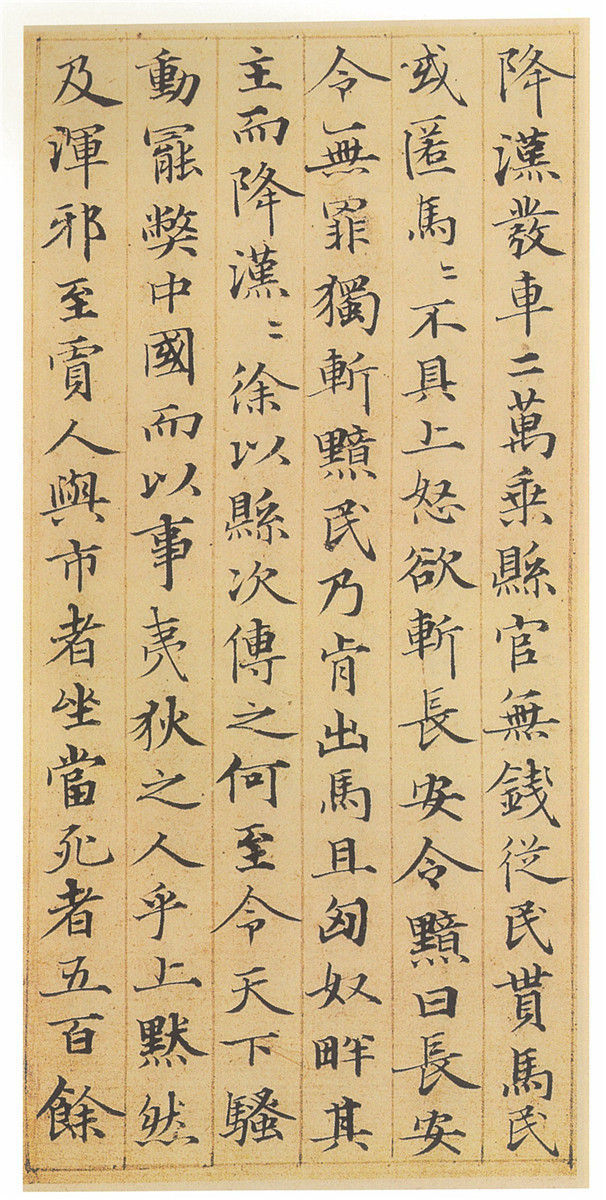 降漢發車二萬乗縣官無錢從民貰馬民
或匿馬〻不具上怒欲斬長安令黯曰長安
令無罪獨斬黯民乃肯出馬且匈奴畔其
主而降漢〻徐以縣次傳之何至令天下騷
動罷弊中國而以事夷狄之人乎上黙然
及渾邪至賈人與市者坐當死者五百餘